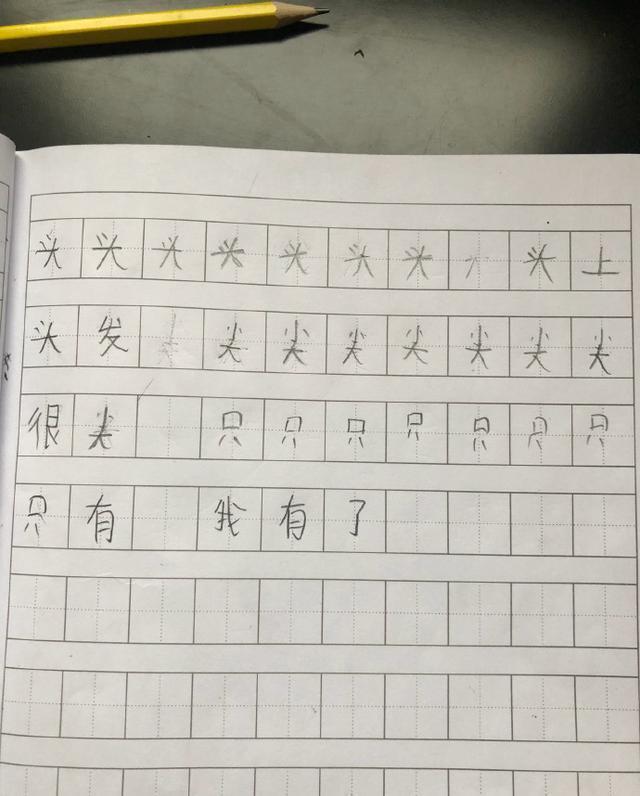 头头头头头头头头上
头发 尖尖尖尖尖尖尖
很尖 只只只只只只只
只有 我有了